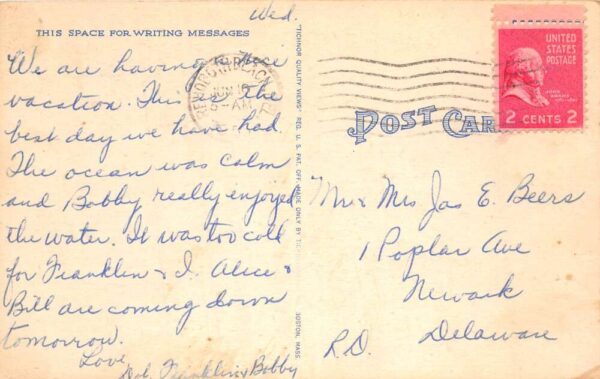 Wed.
THIS SPACE FOR WRITING MESSAGES
We are having a nice
vacation. This is the
best day we have had.
The ocean was calm
and Bobby really enjoyed
the water. It was too cold
for Franklin & I. Alice &
Bill are coming down
tomorrow.
Love
Dot, Franklin & Bobby
"TICHNOR QUALITY VIEWS" REG. U. S. PAT. OFF. MADE ONLY BY
BOSTON, MASS.
REHOBOTH BEACH
AM
POST CARD
UNITED
STATES
POSTAGE
2 CENTS 2
Mr & Mrs Jas E. Beers
1 Poplar Ave
Newark
R.D. Delaware